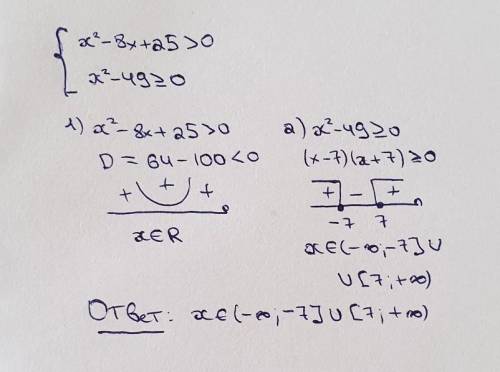 x²-8x+25>0
x²-49≥0
1) x²-8x+25>0
D=64-100<0
+ + +
x∈R
2) x²-49≥0
(x-7)(x+7)≥0
+ - +
-7 7
x∈(-∞;-7]∪
∪[7;+∞)
Ответ: x∈(-∞;-7]∪[7;+∞)